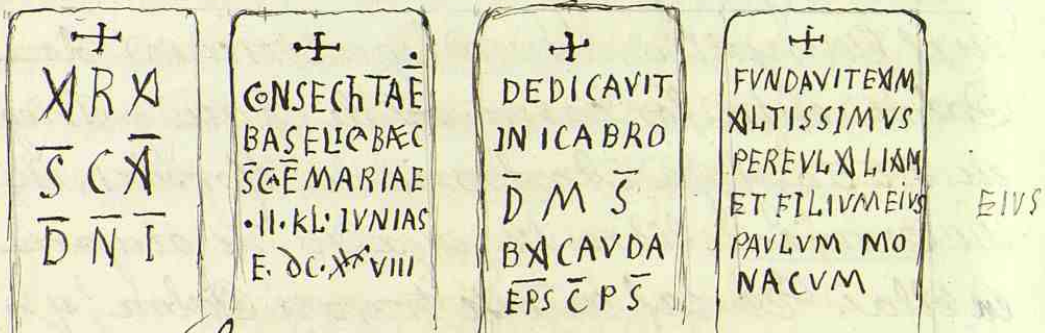 ARA
SCA
DNI
CONSECRTAE
BASELICBAEC
SCAE MARIAE
·II·KL·IVNIAS
E. DC·XXVIII
DEDICAVIT
IN ICABRO
D M S
BACAVDA
EPS C P S
FVNDAVITEAM
ALTISSIMVS
PEREVLALIAM
ET FILIVMEIVS
PAVLVM MO
NACVM
EIVS